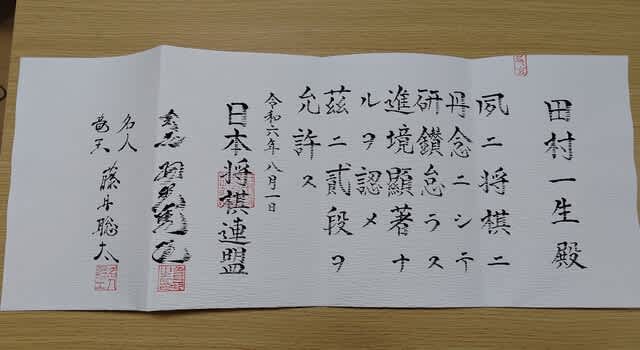 田村一生殿
夙ニ将棋ニ
丹念ニシテ
研鑽怠ラス
進境顯著ナ
ルヲ認メ
茲ニ貳段ヲ
允許ス
令和六年八月一日
日本将棋連盟
名人
竜王 藤井聡太